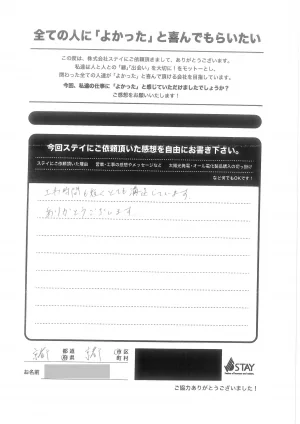 全ての人に「よかった」と喜んでもらいたい
この度は、株式会社ステイにご依頼頂きまして、ありがとうございます。
私達は人と人との「縁」「出会い」を大切に！をモットーとし、
関わった全ての人達が「よかった」と喜んで頂ける会社を目指しています。
今回、私達の仕事に「よかった」と感じていただけましたでしょうか？
ご感想をお願いいたします！
今回ステイにご依頼頂いた感想を自由にお書き下さい。
ステイにご依頼頂いた理由 営業・工事の感想やメッセージなど 太陽光発電・オール電化製品購入のきっかけ
など何でもOKです！
工事時間も短くとても満足しています
ありがとうございます
京都 都道府県 京都 市区町村
お名前
STAY
ご協力ありがとうございました！